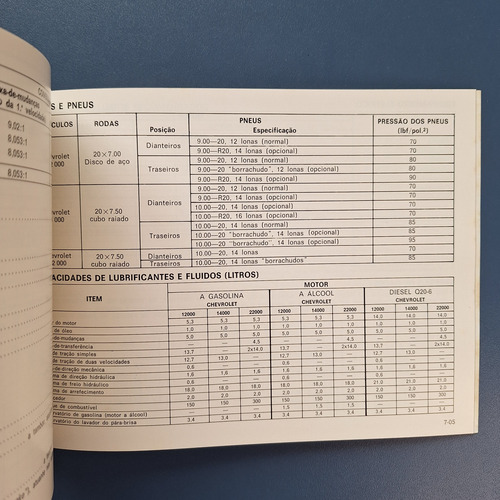 xa-de-mudanças
o da 1.ª velocidade
9,02:1
8,053:1
8,053:1
8,053:1
S E PNEUS
CULOS RODAS PNEUS PRESSÃO DOS PNEUS
Posição Especificação (lbf/pol.²)
Dianteiros 9.00—20, 12 lonas (normal) 70
9.00—R20, 14 lonas (opcional) 70
evrolet 20×7.00 9.00—20, 12 lonas (normal) 80
000 Disco de aço Traseiros 9.00—20 "borrachudo", 12 lonas (opcional) 80
9.00—R20, 14 lonas (opcional) 90
9.00—20, 12 lonas (normal) 70
Dianteiros 9.00—R20, 14 lonas (opcional) 70
10.00—20, 14 lonas (opcional) 70
evrolet 20×7.50 10.00—R20, 16 lonas (opcional) 70
000 cubo raiado 9.00—20, 14 lonas (normal) 85
Traseiros 9.00—20 "borrachudo", 14 lonas (opcional) 85
10.00—20 "borrachudo", 14 lonas (opcional) 95
evrolet 20×7.50 Dianteiros 10.00—20, 14 lonas 70
2 000 cubo raiado Traseiros 10.00—20, 14 lonas "borrachudos" 85
ACIDADES DE LUBRIFICANTES E FLUIDOS (LITROS)
MOTOR
ITEM A GASOLINA A ÁLCOOL DIESEL Q20-6
CHEVROLET CHEVROLET CHEVROLET
12000 14000 22000 12000 14000 22000 12000 14000 22000
do motor 5,3 5,3 5,3 5,3 5,3 5,3 14,0 14,0 14,0
de óleo 1,0 1,0 1,0 1,0 1,0 1,0 1,0 1,0 1,0
de-mudanças 5,0 5,0 5,0 5,0 5,0 5,0 5,0 5,0 5,0
de-transferência — — 4,5 — — 4,5 — — 4,5
de tração simples 13,7 — 2x14,0 13,7 — 2x14,0 13,7 — 2x14,0
de tração de duas velocidades 12,7 13,0 — 12,7 13,0 — 12,7 13,0 —
de direção mecânica 0,6 — — 0,6 — — 0,6 — —
ma de direção hidráulica — 1,6 1,6 — 1,6 1,6 — 1,6 1,6
ma de freio hidráulico 0,6 — — 0,6 — — 0,6 — —
ma de arrefecimento 18,0 18,0 18,0 18,0 18,0 18,0 21,0 21,0 21,0
cedor 2,0 2,0 2,0 2,0 2,0 2,0 2,0 2,0 2,0
ue de combustível 150 150 300 150 150 300 150 150 300
rvatório de gasolina (motor a álcool) — — — 1,5 1,5 1,5 — — —
rvatório do lavador do pára-brisa 3,4 3,4 3,4 3,4 3,4 3,4 3,4 3,4 3,4
7-05